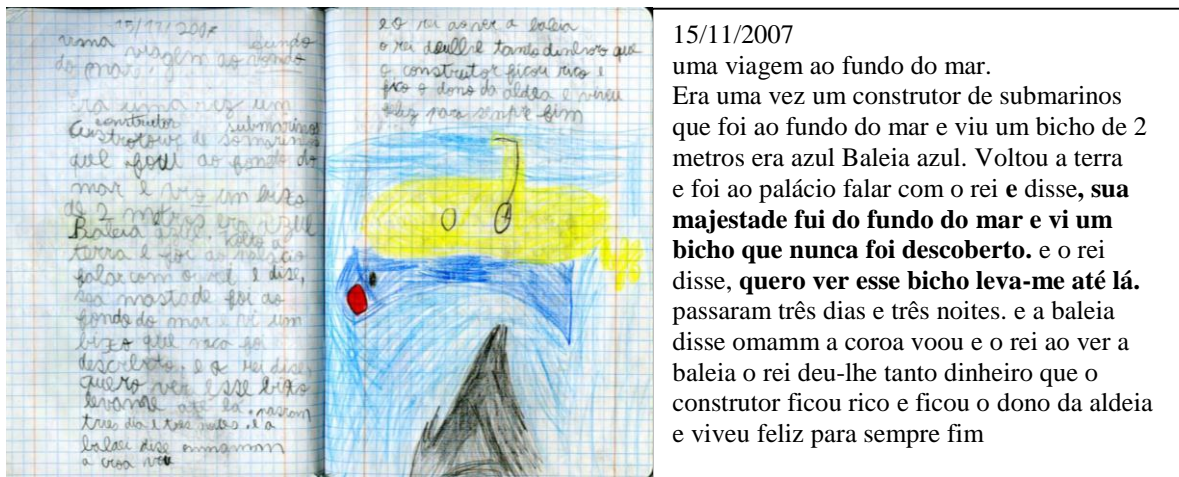 15/11/2007
uma viagem ao fundo
do mar.
Era uma vez um
construtor submarinos
de somarinos
que foui ao fondo do
mar e vio um bixo
de 2 metros era azul
Baleia azul. Volto a
terra e foi ao palacio
falar com o rei e dise,
sua mastade foi ao
fondo do mar e vi um
bixo que naca foi
descoberto. e o rei dise,
quero ver esse bixo
levame até la. pasaram
tres dia e tres noites. e a
balaei dise ommamm
a croa vou
e o rei ao ver a baleia
o rei deulhe tanto dinheiro que
o construtor ficou rico e
fico o dono da aldea e viveu
feliz para sempre fim
15/11/2007
uma viagem ao fundo do mar.
Era uma vez um construtor de submarinos
que foi ao fundo do mar e viu um bicho de 2
metros era azul Baleia azul. Voltou a terra
e foi ao palácio falar com o rei e disse, sua
majestade fui do fundo do mar e vi um
bicho que nunca foi descoberto. e o rei
disse, quero ver esse bicho leva-me até lá.
passaram três dias e três noites. e a baleia
disse omamm a coroa voou e o rei ao ver a
baleia o rei deu-lhe tanto dinheiro que o
construtor ficou rico e ficou o dono da aldeia
e viveu feliz para sempre fim